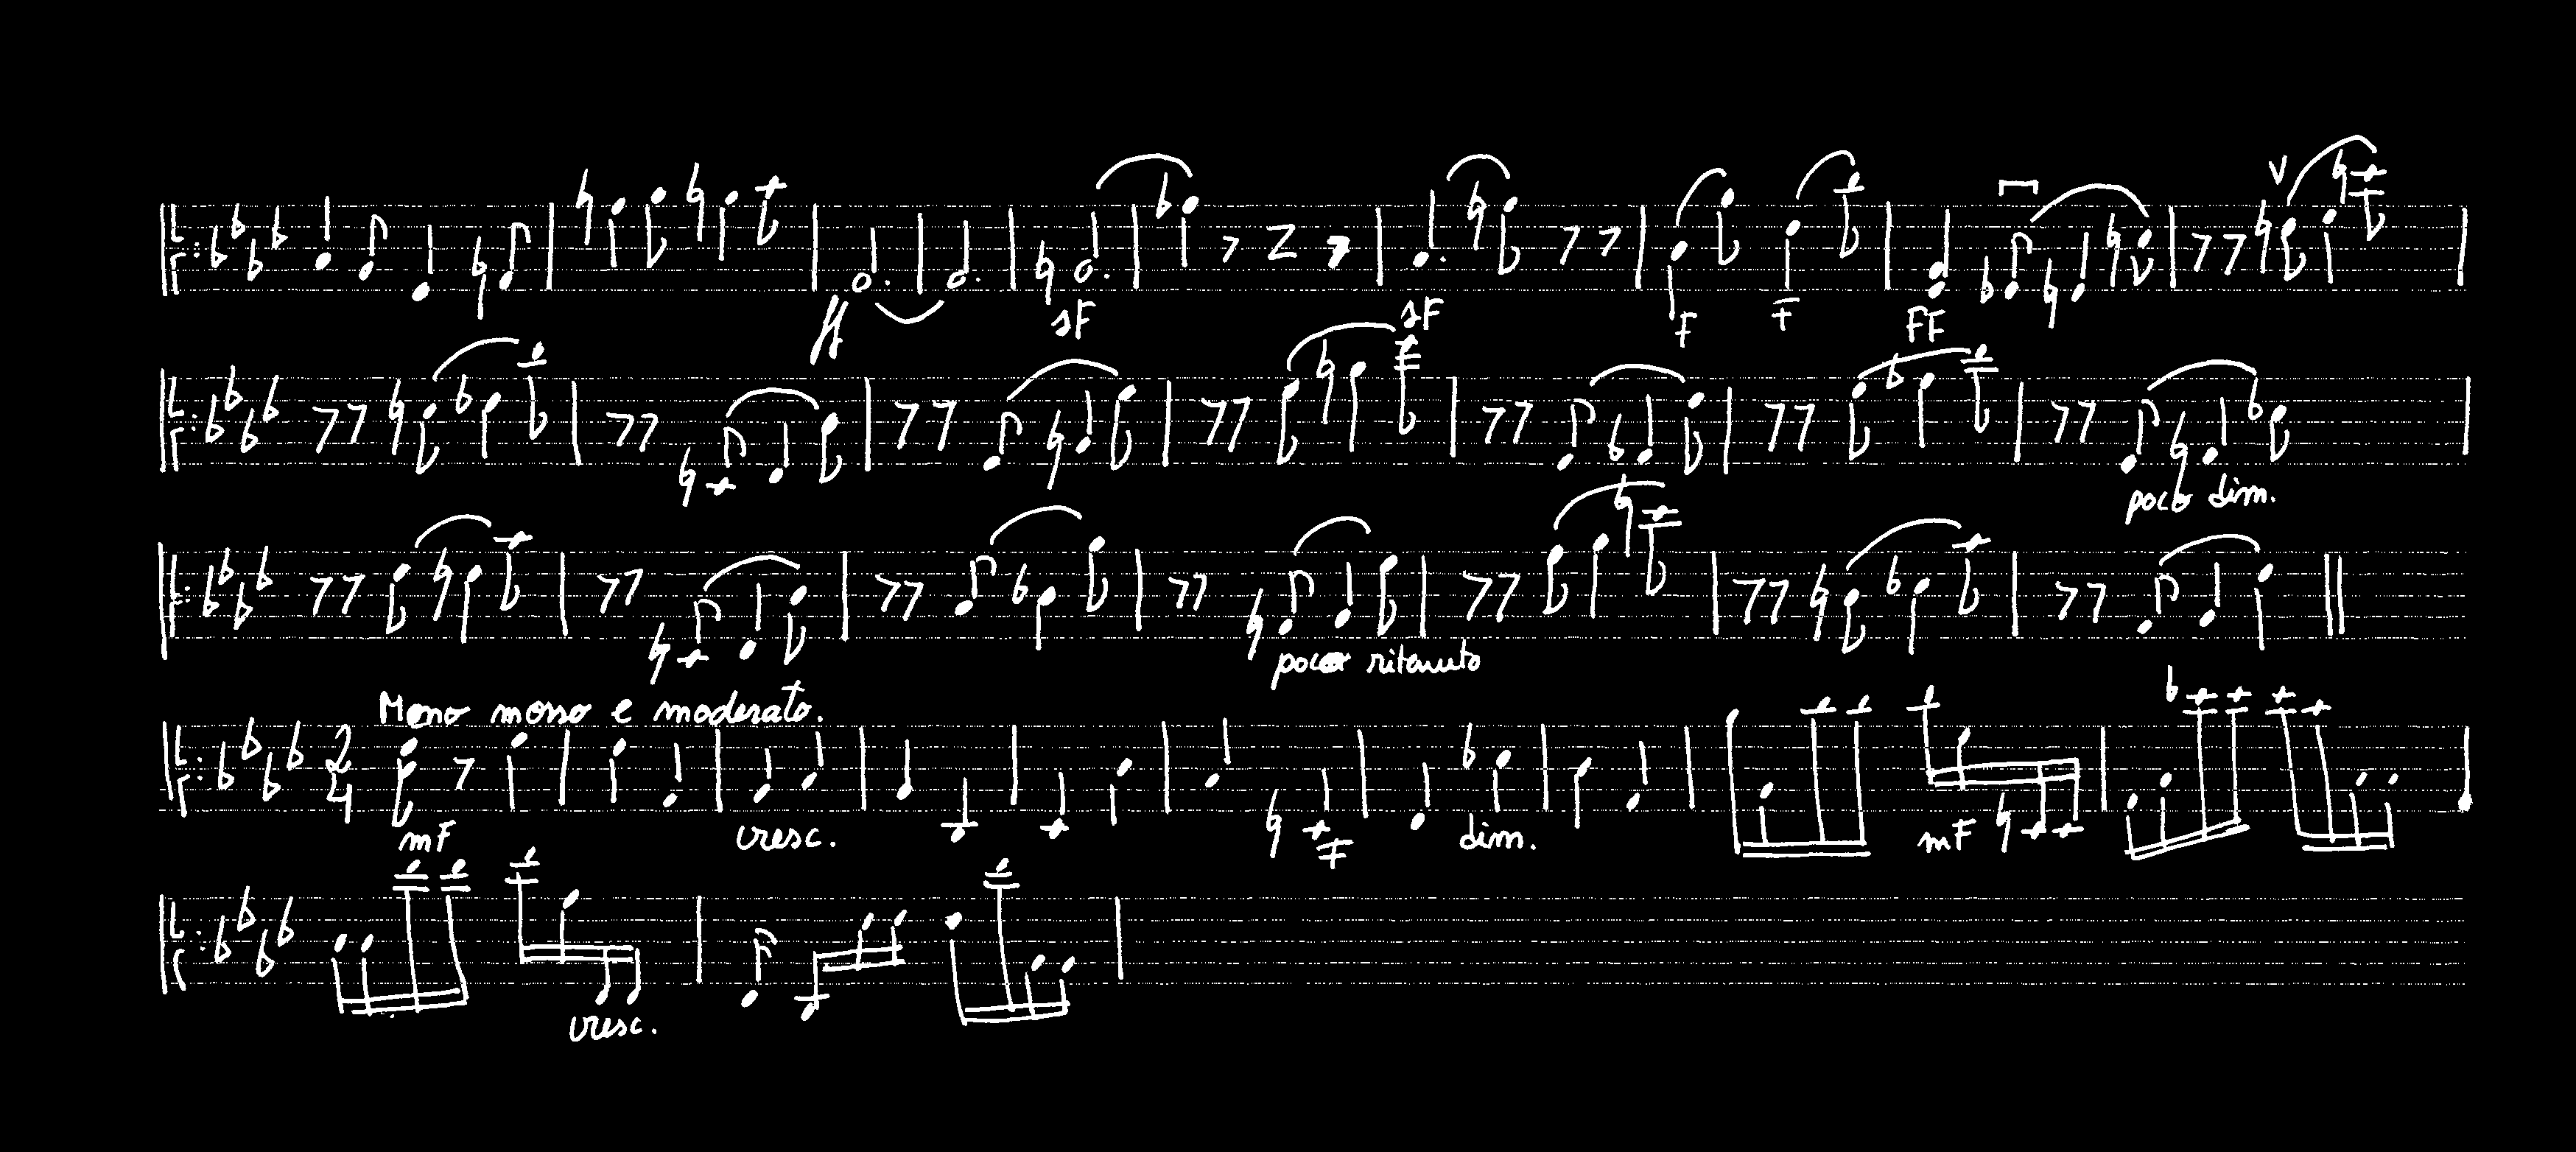 ff sF sF F F FF V
poco dim.
poco ritenuto
Meno mosso e moderato.
2 4
mF cresc. F dim. mF
cresc.